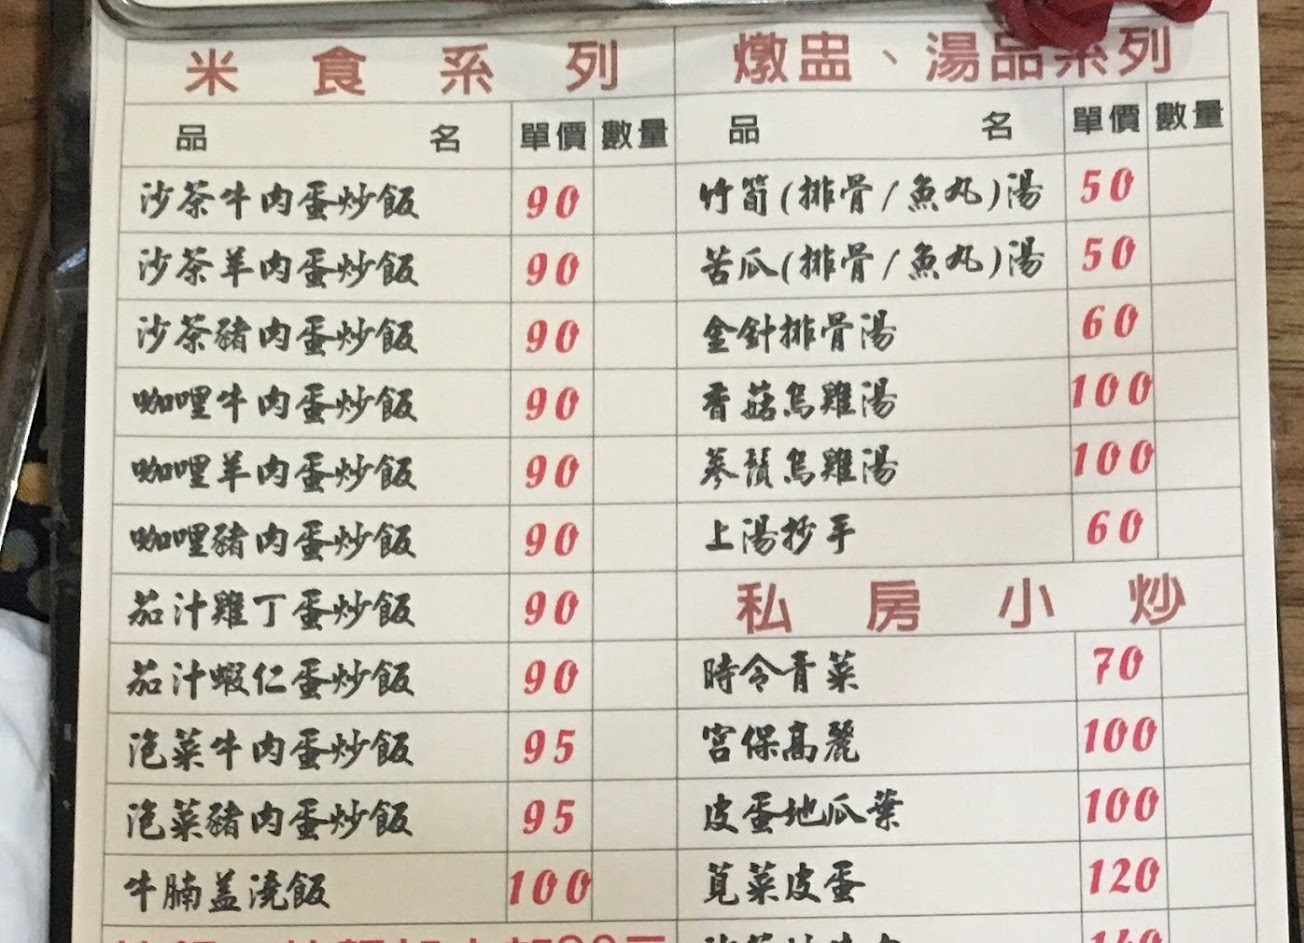 米食系列
品名 單價 數量
沙茶牛肉蛋炒飯 90
沙茶羊肉蛋炒飯 90
沙茶豬肉蛋炒飯 90
咖哩牛肉蛋炒飯 90
咖哩羊肉蛋炒飯 90
咖哩豬肉蛋炒飯 90
茄汁雞丁蛋炒飯 90
茄汁蝦仁蛋炒飯 90
泡菜牛肉蛋炒飯 95
泡菜豬肉蛋炒飯 95
牛腩盖澆飯 100
燉盅、湯品系列
品名 單價 數量
竹筍(排骨/魚丸)湯 50
苦瓜(排骨/魚丸)湯 50
金針排骨湯 60
香菇烏雞湯 100
蔘鬚烏雞湯 100
上湯抄手 60
私房小炒
時令青菜 70
宮保高麗 100
皮蛋地瓜葉 100
莧菜皮蛋 120